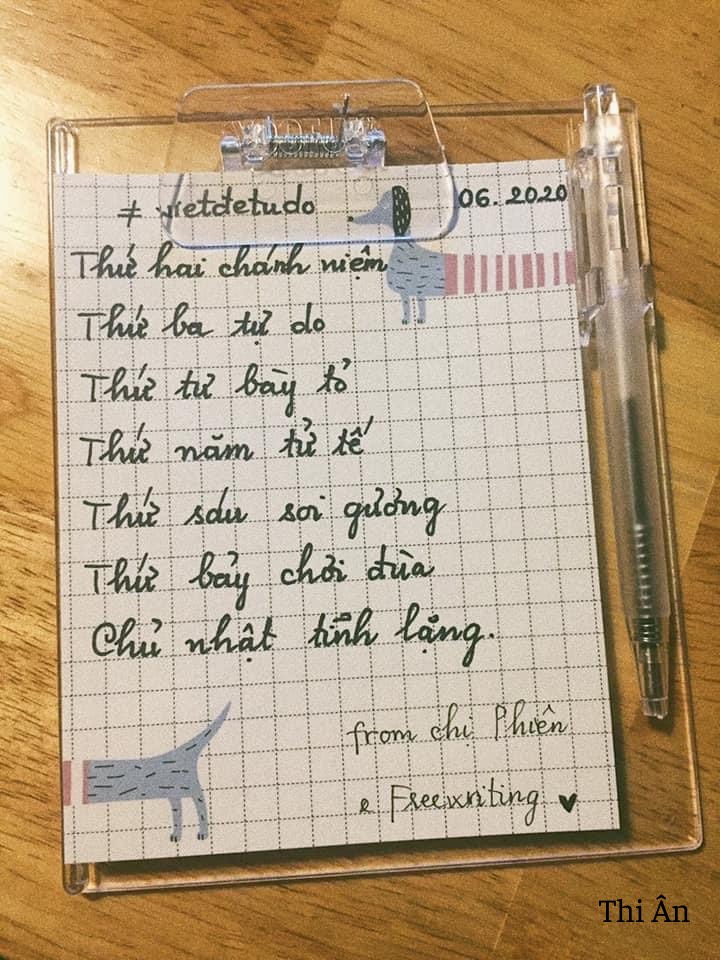 # vietdetudo
06.2020
Thứ hai chánh niệm
Thứ ba tự do
Thứ tư bày tỏ
Thứ năm tử tế
Thứ sáu soi gương
Thứ bảy chơi đùa
Chủ nhật tĩnh lặng.
from chị Phiên
e Freewriting ♥
Thi Ân